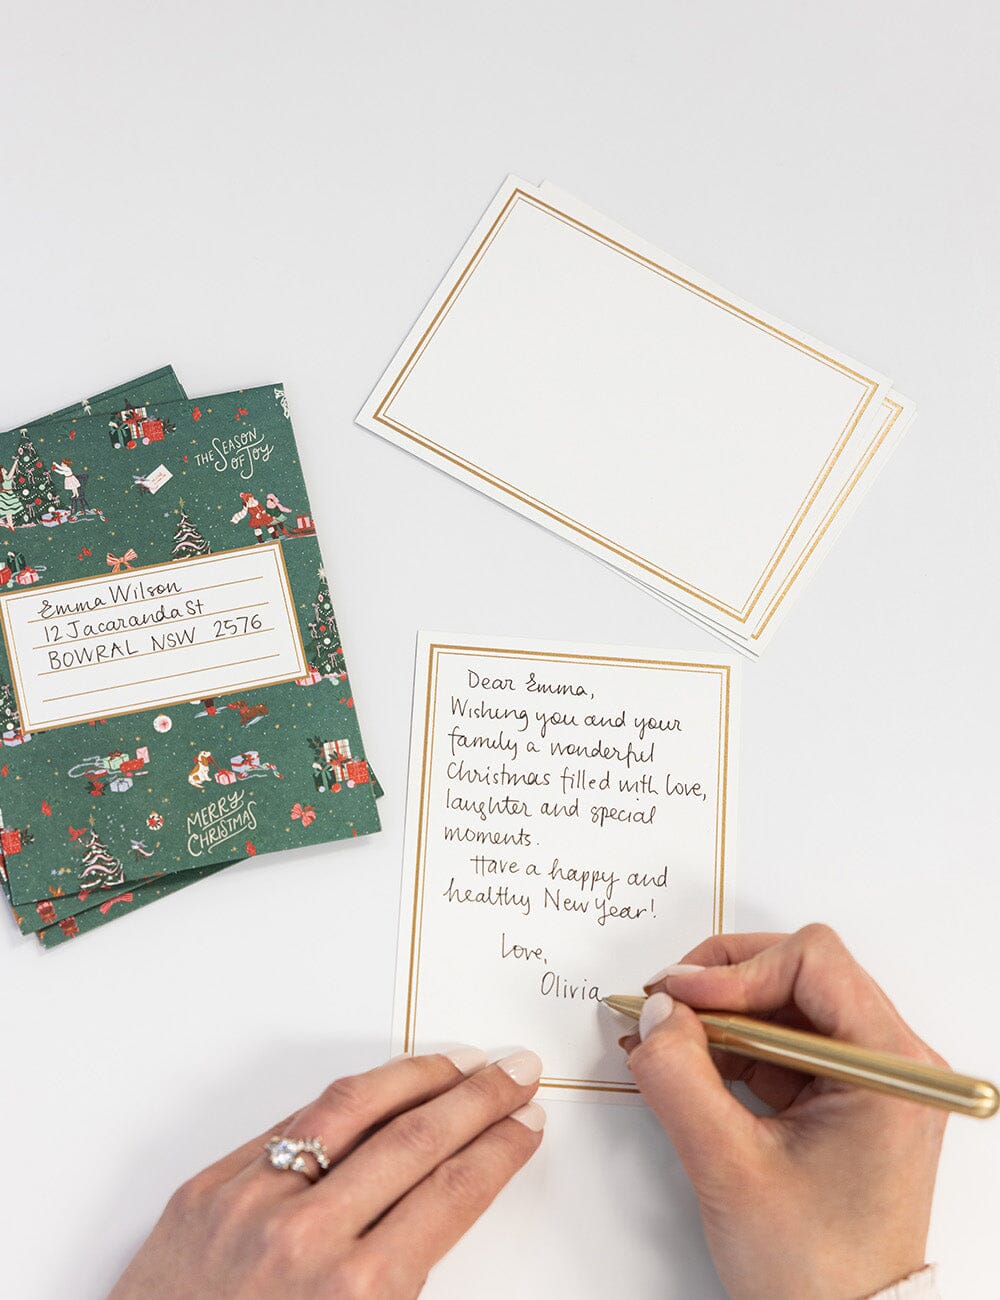 THE SEASON
OF Joy
Emma Wilson
12 Jacaranda St
BOWRAL NSW 2576
MERRY
CHRISTMAS
Dear Emma,
Wishing you and your
family a wonderful
Christmas filled with love,
laughter and special
moments.
Have a happy and
healthy New Year!
Love,
Olivia